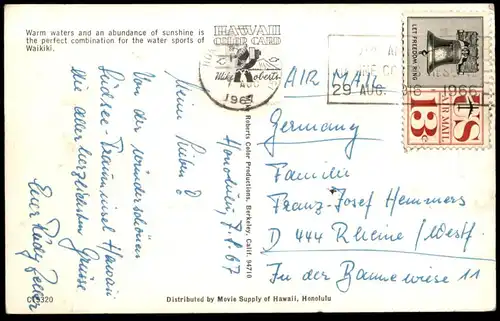 Warm waters and an abundance of sunshine is
the perfect combination for the water sports of
Waikiki.
HAWAII
COLOR CARD
Mike Roberts
LET FREEDOM RING
US
AIR MAIL
13c
29 AUG. 1966
1967
AIR MAIL
Honolulu, 7.8.67
Meine Lieben!
Von der wunderschönen
Südsee-Trauminsel Hawaii
die aller herzlichsten Grüsse
Eure
Germany
Familie
Franz-Josef Hemmers
D 444 Rheine/Westf
In der Bannewiese 11
Mike Roberts Color Productions, Berkeley, Calif. 94710
C15320
Distributed by Movie Supply of Hawaii, Honolulu